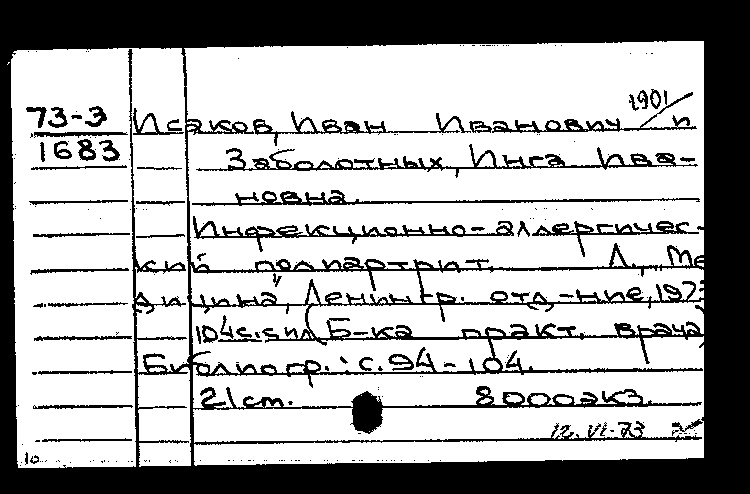 1901
73-3 Исаков, Иван Иванович и
1683 Заболотных, Инга Ива-
новна.
Инфекционно-аллергичес-
кий полиартрит. Л., "Ме
дицина", Ленингр. отд-ние, 197
104с. с ил. (Б-ка практ. врача)
Библиогр.: с. 94-104.
21 см. 8000 экз.
12.VI-73
10